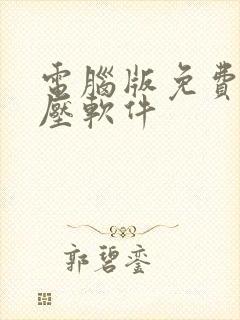 電腦版免費
壓軟件
郭碧銮